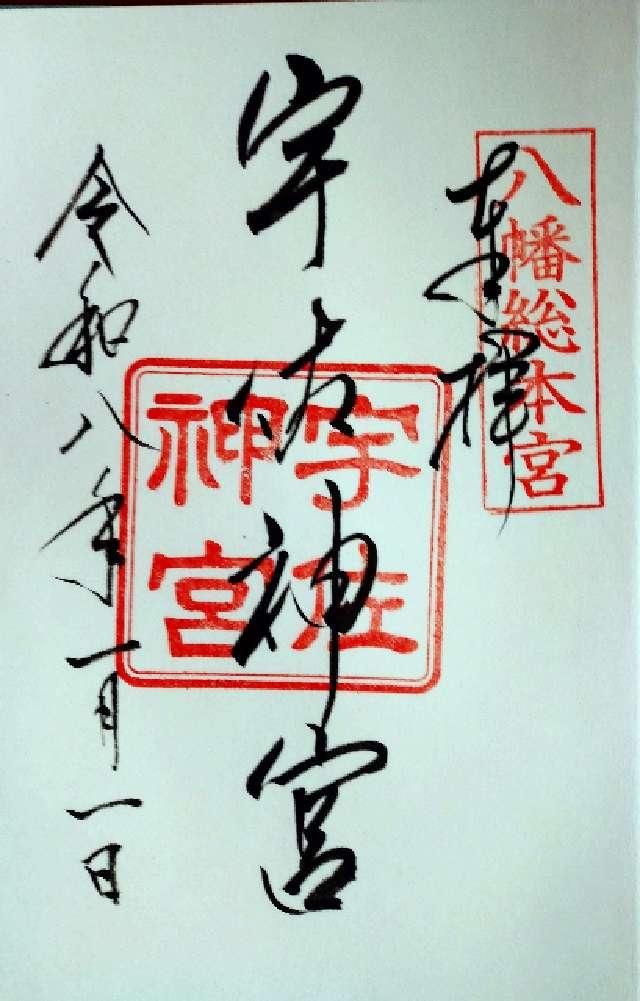 八幡総本宮
奉拝
宇佐神宮
宇佐
神宮
令和八年一月一日